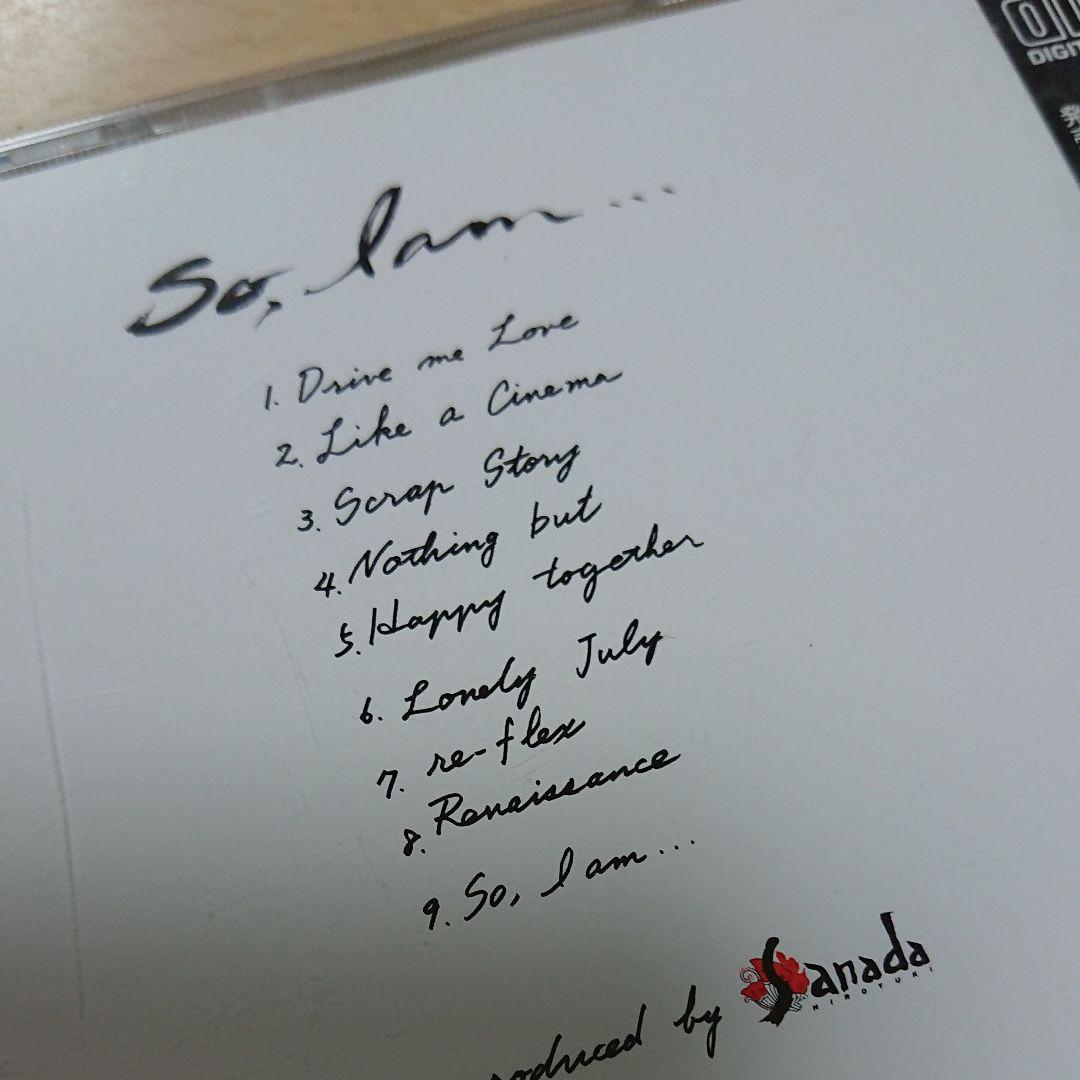 So, I am...
1. Drive me Love
2. Like a Cinema
3. Scrap Story
4. Nothing but
5. Happy together
6. Lonely July
7. re-flex
8. Renaissance
9. So, I am...
roduced by Sanada
HIROYUKI
DIGIT